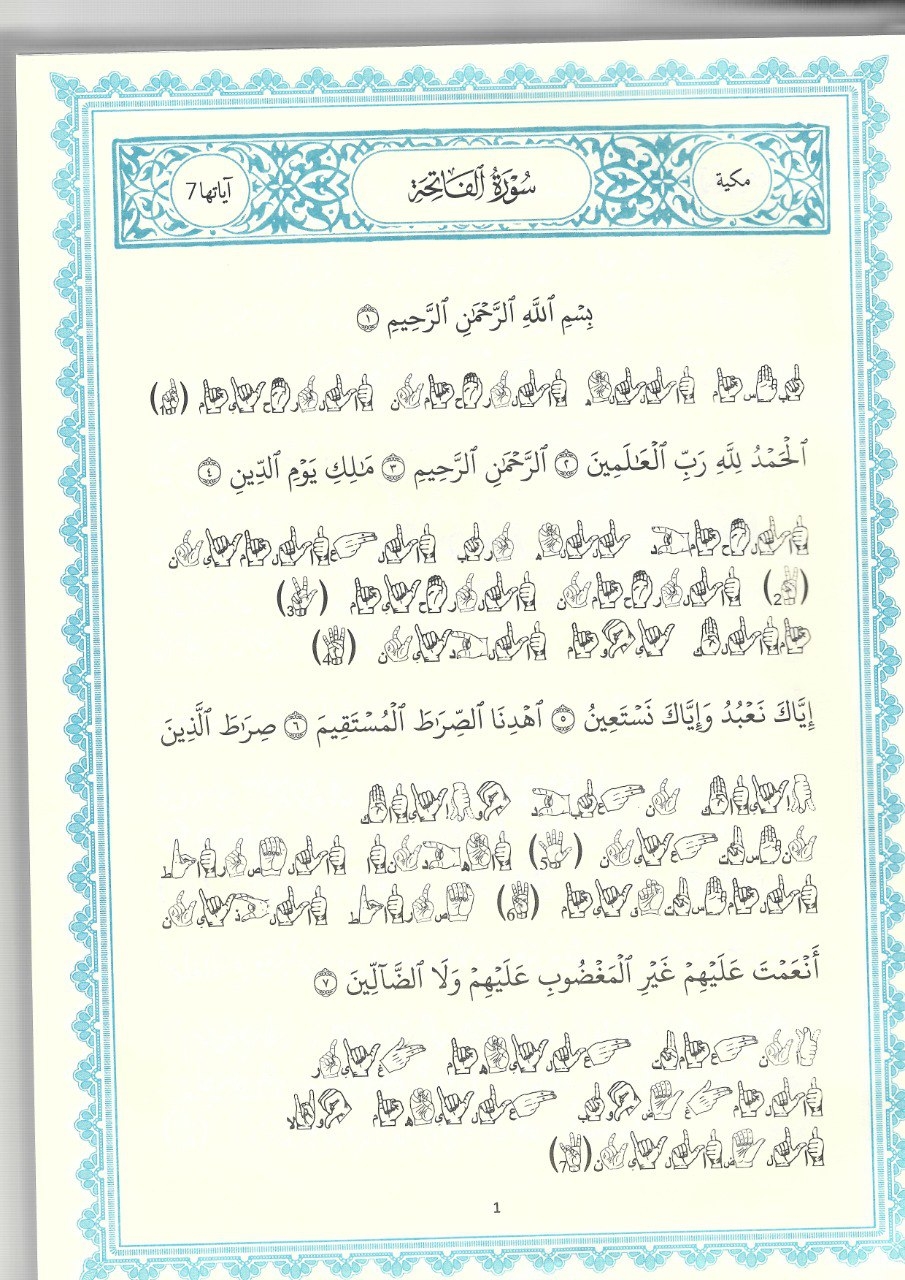 مكية
سُورَةُ ٱلْفَاتِحَةِ
آياتها 7
بِسْمِ ٱللَّهِ ٱلرَّحْمَٰنِ ٱلرَّحِيمِ ١
ب س م ا ل ل ه ا ل ر ح م ن ا ل ر ح ي م (1)
ٱلْحَمْدُ لِلَّهِ رَبِّ ٱلْعَٰلَمِينَ ٢ ٱلرَّحْمَٰنِ ٱلرَّحِيمِ ٣ مَٰلِكِ يَوْمِ ٱلدِّينِ ٤
ا ل ح م د ل ل ه ر ب ا ل ع ا ل م ي ن
(2) ا ل ر ح م ن ا ل ر ح ي م (3)
م ا ل ك ي و م ا ل د ي ن (4)
إِيَّاكَ نَعْبُدُ وَإِيَّاكَ نَسْتَعِينُ ٥ ٱهْدِنَا ٱلصِّرَٰطَ ٱلْمُسْتَقِيمَ ٦ صِرَٰطَ ٱلَّذِينَ
إ ي ا ك ن ع ب د و إ ي ا ك
ن س ت ع ي ن (5) ا ه د ن ا ا ل ص ر ا ط
ا ل م س ت ق ي م (6) ص ر ا ط ا ل ذ ي ن
أَنْعَمْتَ عَلَيْهِمْ غَيْرِ ٱلْمَغْضُوبِ عَلَيْهِمْ وَلَا ٱلضَّآلِّينَ ٧
أ ن ع م ت ع ل ي ه م غ ي ر
ا ل م غ ض و ب ع ل ي ه م و لا
ا ل ض ا ل ي ن (7)
1